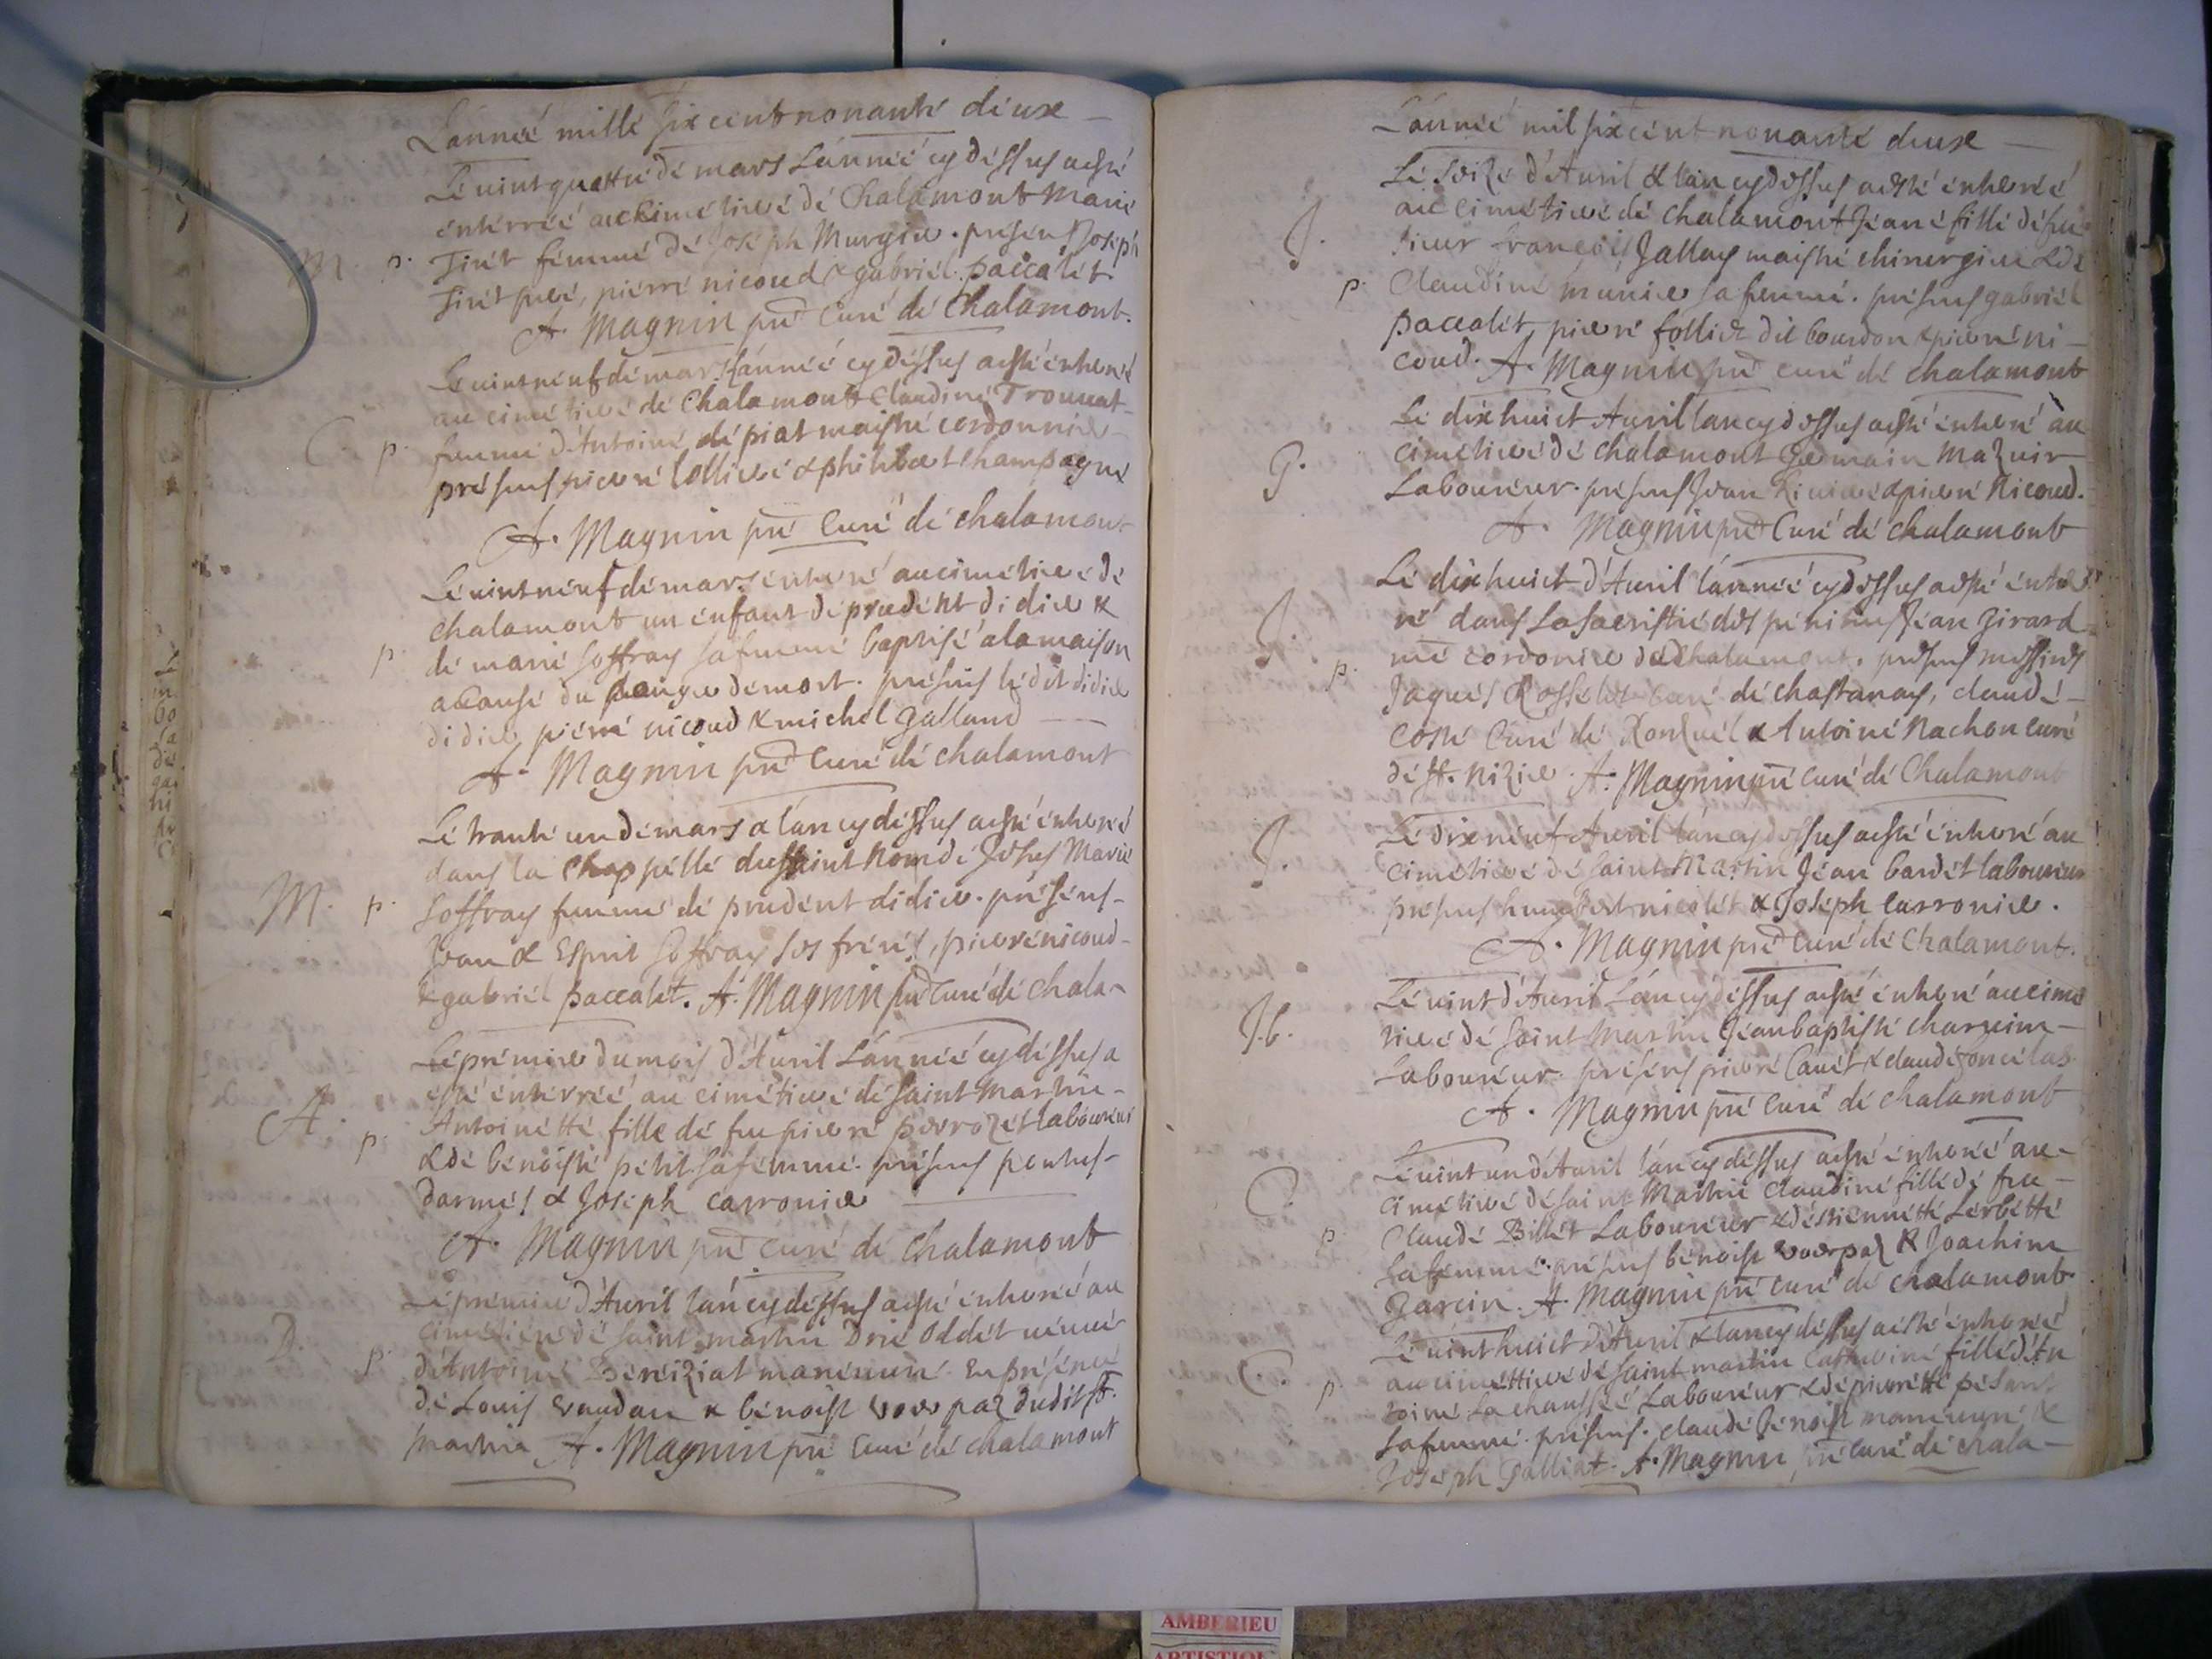 Lánneé millé six cent nonanté deuxe
Lé uint quattré dé mars Lánneé cy déssus aésté
énterreé au Cimétieré dé Chalamont Marié
M. p. Tirét fémmé dé Joséph Murgier. présens Joséph
Tirét peré, piérré nicoud & gabriél paccalét
A. Magnin prê Curé dé Chalamont.
Lé uintneuf dé mars Lánneé cy déssus aésté énterré
au cimétieré dé Chalamont Claudiné Trouuat
C. p. femmé d'Antoiné dépiat maistré cordonnier
présens pierré lollieré & philibert Champagné
A. Magnin prê Curé dé chalamont
Lé uintneuf dé mars énterré au cimétieré dé
chalamont un énfant dé prudént didier &
p. dé marié soffray safemmé baptisé alamaison
acausé du dangier démort. présens lédit didier
didier, piérré nicoud & michél Galland
A. Magnin prê Curé dé chalamont
Lé tranté un dé mars & láncy déssus aésté énterré
dans la Chappéllé du Saint Nom dé Jésus Marié
M. p. Soffray femmé dé prudént didier. présens
Jean & Esprit Soffray ses freres, pierré nicoud
& gabriél paccalét. A. Magnin prê Curé dé chala
Lé prémier du mois d'Auril Lánneé cy déssus a
ésté énterreé au cimétieré dé saint Martin
A. p. Antoinétté fillé dé feu pierré perrozét laboureur
& dé bénoisté pétit safémmé. présens pontus
darmes & Joséph carronier
A. Magnin prê curé dé Chalamont
Lé prémier d'Auril láncy déssus aésté énterré au
cimétieré dé saint martin Drié Oddét
D. p. d'Antoiné Béréziat. En présénce
dé Louis vaudan & bénoist voerpaz dudit st.
Martin A. Magnin prê Curé dé chalamont
Lánneé mil sixcént nonanté deuxe
Lé seizé d'Auril & láncydessus aésté énterreé
au cimétieré dé chalamont Jéané fillé dé feu
J. sieur francois Jallay maistré chirurgien & dé
p. Claudiné muniér safemmé. présens gabriél
paccalét, pierré folliet dit bourdon & pierré ni
coud. A. Magnin prê curé dé chalamont
Lé dixhuict Auril láncydessus aésté énterré au
G. cimétieré dé chalamont Germain Mazuir
Laboureur. présens Jean Riuieré & pierré Nicoud.
A. Magnin prê Curé dé chalamont
Lé dixhuict d'Auril lánneé cydessus aésté énter
J. ré dans La Sacristié des pénitens Jéan Girard
p. mé cordonier dé Chalamont. présens messires
Jaques Rosselot curé dé chastenay, claudé
Costé Curé dé Ronzuél & Antoiné Nachon curé
dé st. Nizier. A. Magnin prê curé dé Chalamont
J. Lé dixneuf Auril láncydessus aésté énterré au
cimétieré dé saint Martin Jéan bardét laboureur
présens humbert nicolét & Joséph carronier.
A. Magnin prê curé dé Chalamont.
Lé uint d'Auril Láncydéssus aésté énterré au cimé
J.b. tieré dé saint Martin Jéanbaptisté charuein
Laboureur. présens pierré Cauét & claudé foncelas
A. Magnin prê curé dé chalamont
Lé uint un d'Auril láncy déssus aésté énterreé au
C. cimétieré dé saint Martin Claudiné fillé dé feu
p. Claudé Billét Laboureur & d'éstiennétté Lerbétté
safemmé. présens bénoist voerpaz & Joachim
Garcin. A. Magnin prê curé dé chalamont
Lé uint huict d'Auril & láncy déssus aésté énterreé
C. au cimétieré dé saint martin Catheriné fillé d'An
p. toiné Lachausseé Laboureur & dé pierrétté
safemmé. présens. claudé Bénoist &
Joséph Galliat. A. Magnin prê curé dé chala
AMBERIEU
ARTISTIQUE